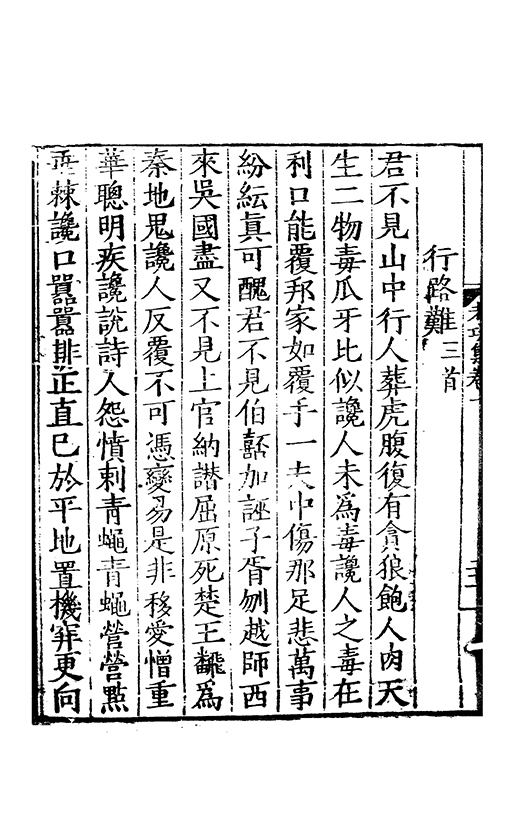 行路難三首
君不見山中行人葬虎腹復有貪狼飽人肉天
生二物毒瓜牙比似讒人未爲毒讒人之毒在
利口能覆邦家如覆手一夫中傷那足悲萬事
紛紜真可醜君不見伯嚭加誣子胥刎越師西
來吳國盡又不見上官納譖屈原死楚王飜爲
秦地鬼讒人反覆不可憑變易是非移愛憎重
華聰明疾讒說詩人怨憤刺青蠅青蠅營營點
棘讒口囂囂排正直已於平地置機穽更向